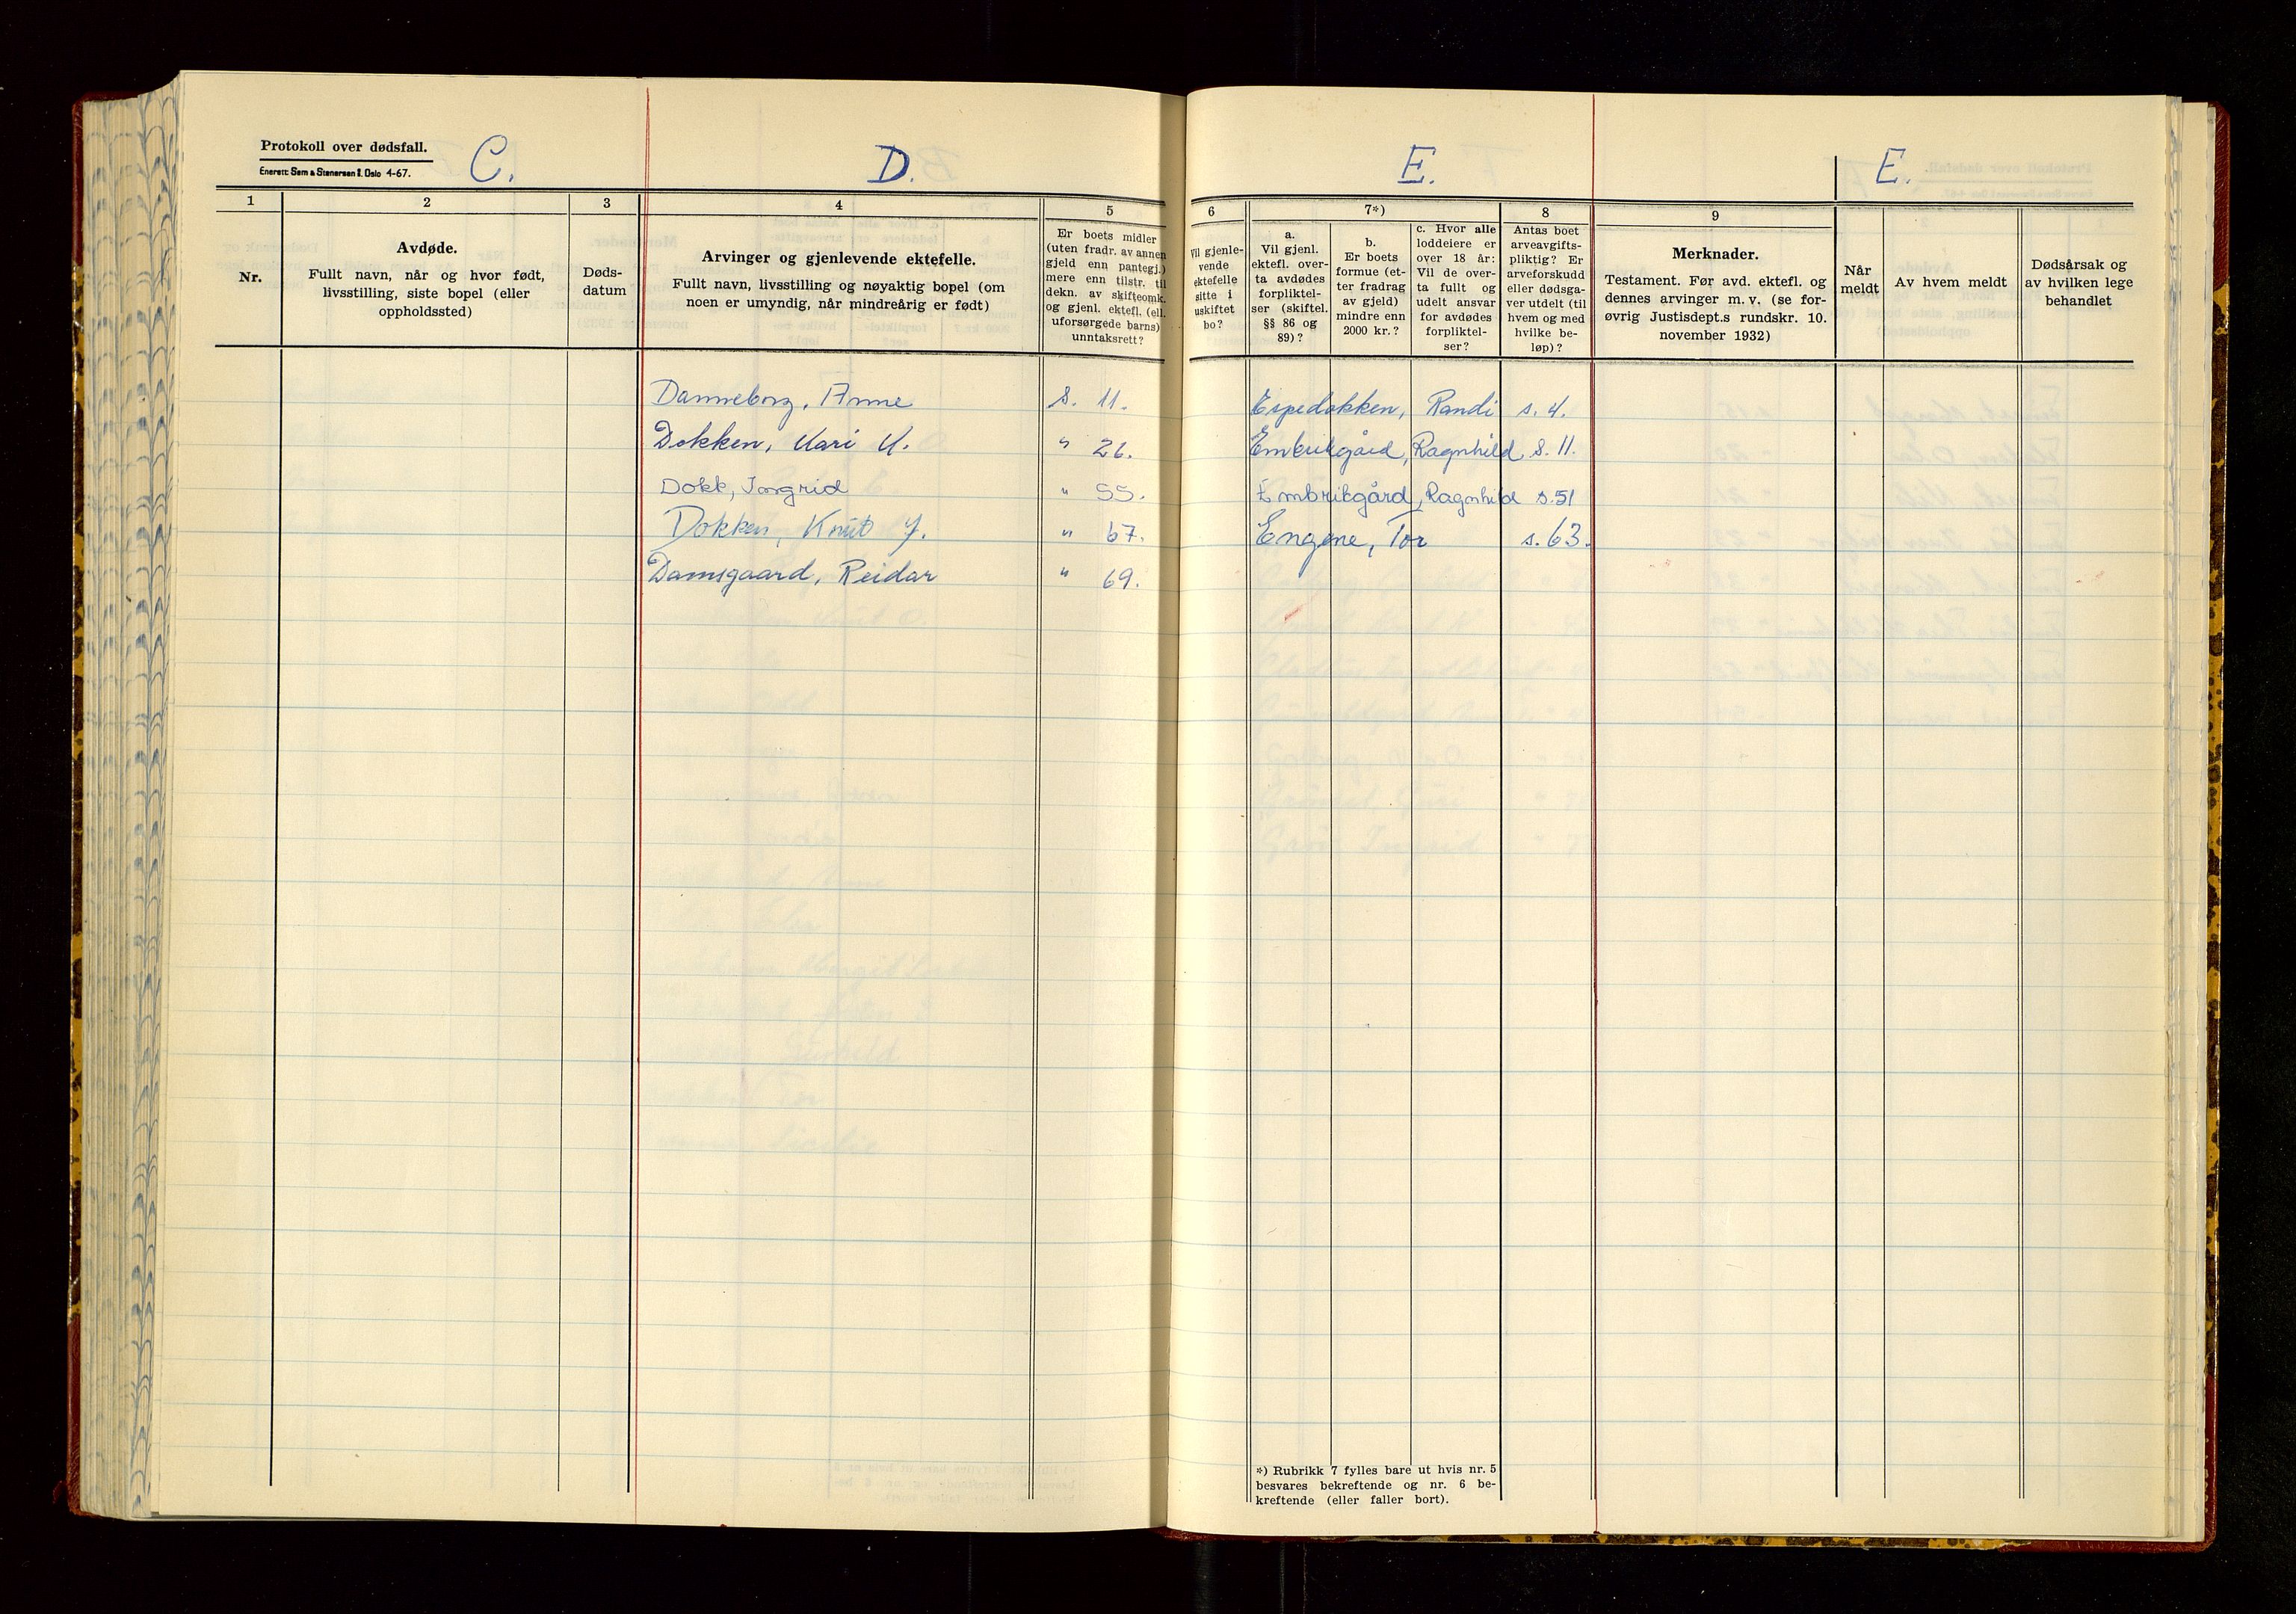 Protokoll over dødsfall.
Enerett: Sem & Stenersen ⅍. Oslo 4-67.
C.
D.
1
2
3
4
5
Nr.
Avdøde.
Fullt navn, når og hvor født,
livsstilling, siste bopel (eller
oppholdssted)
Døds-
datum
Arvinger og gjenlevende ektefelle.
Fullt navn, livsstilling og nøyaktig bopel (om
noen er umyndig, når mindreårig er født)
Er boets midler
(uten fradr. av annen
gjeld enn pantegj.)
mere enn tilstr. til
dekn. av skifteomk.
og gjenl. ektef. (ell.
uforsørgede barns)
unntaksrett?
Danneborg, Anne s. 11.
Dokken, Kari K. " 26.
Dokk, Jorgrid " 55.
Dokken, Knut J. " 67.
Damsgaard, Reidar " 69.
E.
E.
6
7*)
8
9
Vil gjenle-
vende
ektefelle
sitte i
uskiftet
bo?
a.
Vil gjenl.
ektefl. over-
ta avdødes
forpliktel-
ser (skiftel.
§§ 86 og
89)?
b.
Er boets
formue (et-
ter fradrag
av gjeld)
mindre enn
2000 kr.?
c. Hvor alle
loddeiere er
over 18 år:
Vil de over-
ta fullt og
udelt ansvar
for avdødes
forpliktel-
ser?
Antas boet
arveavgifts-
pliktig? Er
arveforskudd
eller dødsga-
ver utdelt (til
hvem og med
hvilke be-
løp)?
Merknader.
Testament. Før avd. ektefl. og
dennes arvinger m. v. (se for-
øvrig Justisdept.s rundskr. 10.
november 1932)
Når
meldt
Av hvem meldt
Dødsårsak og
av hvilken lege
behandlet
Espedokken, Randi s. 4.
Embrikgård, Ragnhild s. 11.
Embrikgård, Ragnhild s. 51
Engene, Tor s. 63.
*) Rubrikk 7 fylles bare ut hvis nr. 5
besvares bekreftende og nr. 6 be-
kreftende (eller faller bort).